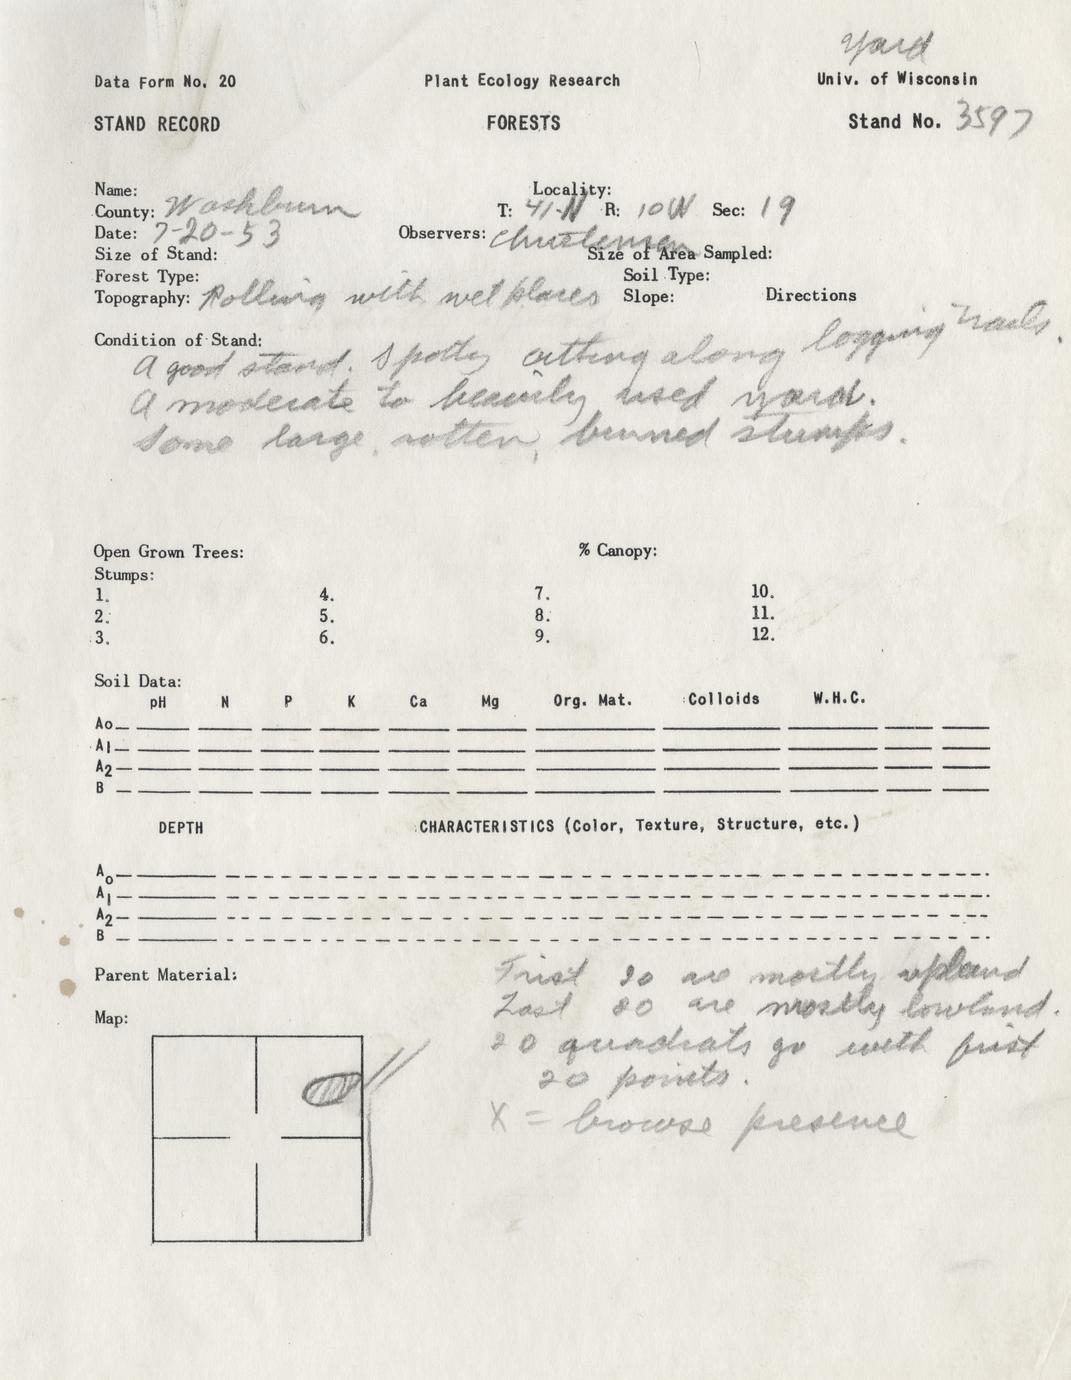 Yard
Data Form No. 20 Plant Ecology Research Univ. of Wisconsin
STAND RECORD FORESTS Stand No. 3597
Name: Locality:
County: Washburn T: 41-N R: 10W Sec: 19
Date: 7-20-53 Observers: Christensen
Size of Stand: Size of Area Sampled:
Forest Type: Soil Type:
Topography: Rolling with wet places Slope: Directions
Condition of Stand:
A good stand. Spotty cutting along logging trails.
A moderate to heavily used yard.
Some large, rotten, burned stumps.
Open Grown Trees: % Canopy:
Stumps:
1. 4. 7. 10.
2. 5. 8. 11.
3. 6. 9. 12.
Soil Data:
pH N P K Ca Mg Org. Mat. Colloids W.H.C.
Ao
A1
A2
B
DEPTH CHARACTERISTICS (Color, Texture, Structure, etc.)
Ao
A1
A2
B
Parent Material:
Map:
First 20 are mostly upland
Last 20 are mostly lowland.
20 quadrats go with first
20 points.
X = browse presence